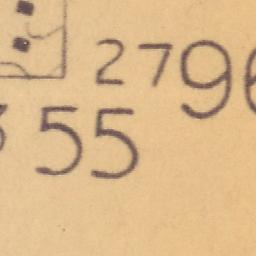 2796
355